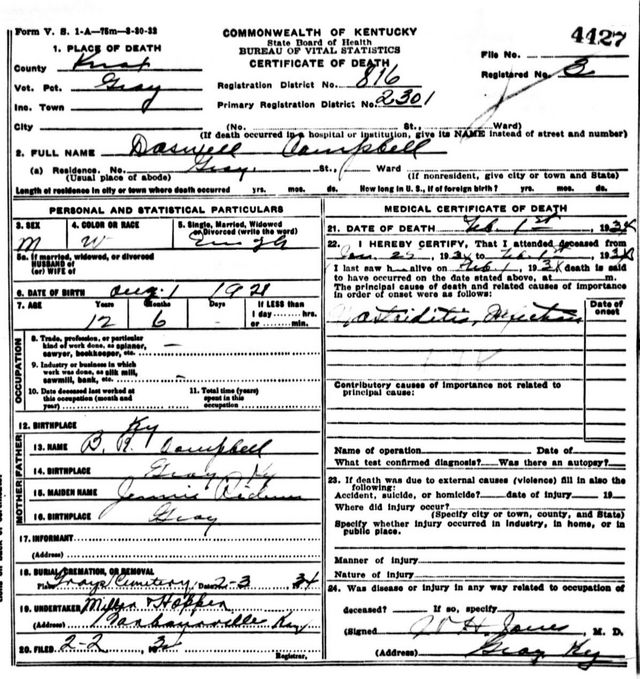 Form V. S. 1-A—75m—8-30-32
COMMONWEALTH OF KENTUCKY
State Board of Health
BUREAU OF VITAL STATISTICS
CERTIFICATE OF DEATH
4427
File No.
Registered No. 3
1. PLACE OF DEATH
County Knox
Vot. Pct. Gray
Inc. Town
City
Registration District No. 816
Primary Registration District No. 2301
(No. St., Ward)
(If death occurred in a hospital or institution, give its NAME instead of street and number)
2. FULL NAME Daswell Campbell
(a) Residence. No. Gray St., Ward
(Usual place of abode) (If nonresident, give city or town and State)
Length of residence in city or town where death occurred yrs. mos. ds. How long in U. S., if of foreign birth? yrs. mos. ds.
PERSONAL AND STATISTICAL PARTICULARS
3. SEX M
4. COLOR OR RACE W
5. Single, Married, Widowed
or Divorced (write the word)
Single
5a. If married, widowed, or divorced
HUSBAND of
(or) WIFE of
6. DATE OF BIRTH Aug. 1 1921
7. AGE Years Months Days If LESS than
1 day hrs.
12 6 - or min.
OCCUPATION
8. Trade, profession, or particular
kind of work done, as spinner,
sawyer, bookkeeper, etc. —
9. Industry or business in which
work was done, as silk mill,
sawmill, bank, etc. —
10. Date deceased last worked at
this occupation (month and
year)
11. Total time (years)
spent in this
occupation
12. BIRTHPLACE Ky
FATHER
13. NAME B. R. Campbell
14. BIRTHPLACE Gray Ky
MOTHER
15. MAIDEN NAME Jeannie
16. BIRTHPLACE Gray
17. INFORMANT
(Address)
18. BURIAL, CREMATION, OR REMOVAL
Place Grays Cemetery Date 2-3 34
19. UNDERTAKER Miller & Hopper
(Address) Barbourville Ky
20. FILED 2-2 34
Registrar.
MEDICAL CERTIFICATE OF DEATH
21. DATE OF DEATH Feb. 1st, 1934
22. I HEREBY CERTIFY, That I attended deceased from
Jan. 1934 to Feb. 1st, 1934
I last saw h alive on Feb 1, 1934 death is said
to have occurred on the date stated above, at m.
The principal cause of death and related causes of importance
in order of onset were as follows:
Date of
onset
Mastoiditis,
Contributory causes of importance not related to
principal cause:
Name of operation Date of
What test confirmed diagnosis? Was there an autopsy?
23. If death was due to external causes (violence) fill in also the
following:
Accident, suicide, or homicide? date of injury 19
Where did injury occur?
(Specify city or town, county, and State)
Specify whether injury occurred in industry, in home, or in
public place.
Manner of injury
Nature of injury
24. Was disease or injury in any way related to occupation of
deceased? If so, specify
(Signed) H. Jones, M. D.
(Address) Gray Ky